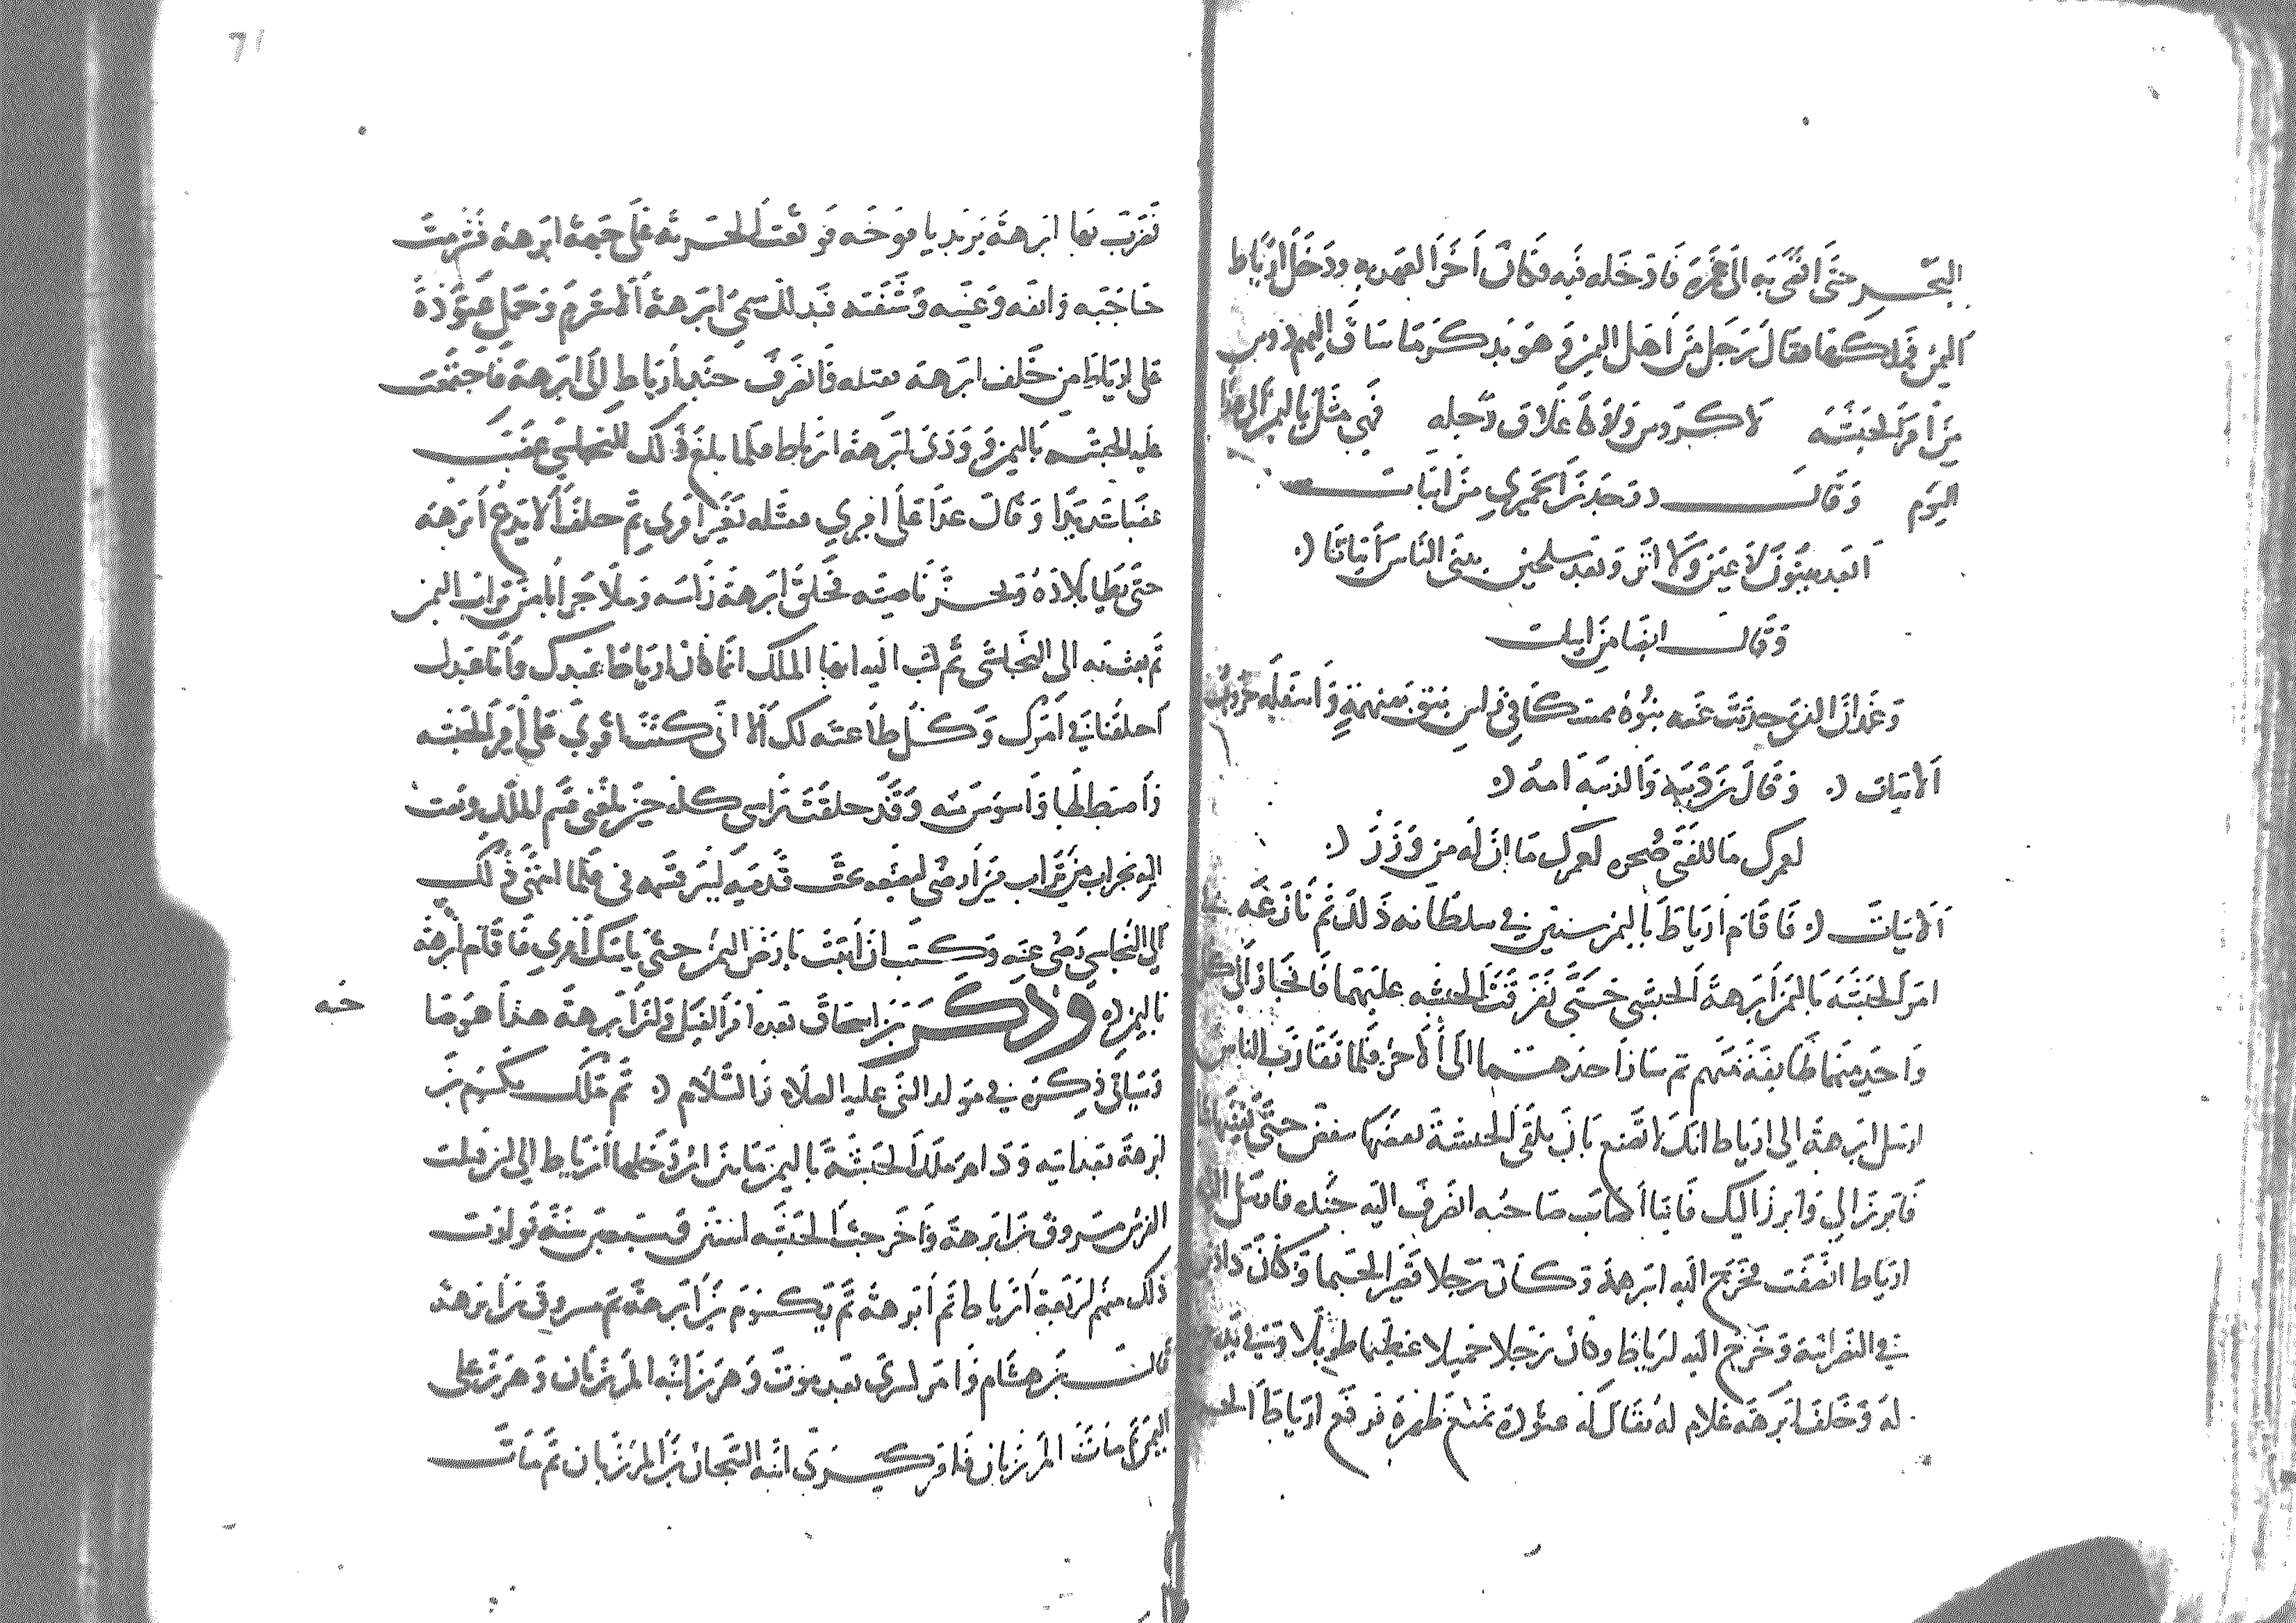 البحر حتى افضى به الى غمره فادخله فيه وكان اخر العهد به ودخل ارياط
اليمن فملكها فقال رجل من اهل اليمن وهو يذكر ما ساق اليهم دوس
من امر الحبشة لا كدوس ولا كاغلاق رحله فهي مثل باليمن الى هذا
اليوم وقال ذو جدن الحميري من ابيات
ابعد بينون لا عين ولا اثر وبعد سلحين يبنى الناس ابياتا
وقال ايضا من ابيات
وغمدان الذي حدثت عنه بنوه
الابيات وقال بن الذيبة والذيبة امه
لعمرك ما للفتى صحره لعمرك ما ان له من وزر
الابيات فاقام ارياط باليمن سنين في سلطانه ذلك ثم نازعه
امر الحبشة باليمن ابرهة الحبشي حتى تفرقت الحبشه عليهما فانحاز الى كل
واحد منهما طايفة منهم ثم سار احدهما الى الاخر فلما تقارب الناس
ارسل ابرهة الى ارياط انك لا تصنع بان يلقى الحبشة بعضها ببعض حتى
فابرز الي وابرز اليك فاينا اصاب صاحبه انصرف اليه جنده فارسل اليه
ارياط انصفت فخرج اليه ابرهة وكان رجلا قصيرا لحيما وكان ذا دين
في النصرانية وخرج اليه ارياط وكان رجلا جميلا عظيما طويلا وفي يده
له وخلف ابرهة غلام له يقال له عتودة يمنع ظهره فرفع ارياط
فضرب بها ابرهة يريد يافوخه فوقعت الحربة على جبهة ابرهة فشرمت
حاجبه وانفه وعينه وشفته فبذلك سمي ابرهة الاشرم وحمل عتودة
على ارياط من خلف ابرهة فقتله فانصرف جند ارياط الى ابرهة فاجتمعت
عليه الحبشه باليمن وودى ابرهة ارياط فلما بلغ ذلك للنجاشي غضب
غضبا شديدا وقال عدا على اميري فقتله بغير امري ثم حلف الا يدع ابرهة
حتى يطا بلاده ويجز ناصيته فحلق ابرهة راسه وملا جرابا من تراب اليمن
ثم بعث به الى النجاشي ثم كتب اليه ايها الملك انما كان ارياط عبدك وانا عبدك
اختلفنا في امرك وكل طاعته لك الا اني كنت اقوى على امر الحبشه
واضبط لها واسوس منه وقد حلقت راسي كله حين بلغني قسم الملك وبعثت
اليه بجراب من تراب من ارضي ليضعه تحت قدميه ليبر قسمه في فلما انتهى ذلك
الى النجاشي رضي عنه وكتب ان اثبت بارض اليمن حتى ياتيك امري فاقام ابرهة
باليمن وذكر بن اسحاق بعد امر الفيل
وسياتي ذكره في مولد النبي عليه الصلاه والسلام ثم ملك يكسوم بن
ابرهة بعد ابيه الحبشة باليمن ما بين ان دخلها ارياط الى ان قتلت
الفرس مسروق بن ابرهة واخرجت الحبشه اثنتين وسبعين سنة توارث
ذلك منهم اربعة ارياط ثم ابرهة ثم يكسوم بن ابرهة ثم مسروق بن ابرهة
قال بن هشام وامر كسرى بعد موت وهرز ابنه المرزبان وهرز على
اليمن ثم مات المرزبان فامر كسرى ابنه التينجان بن المرزبان ثم مات